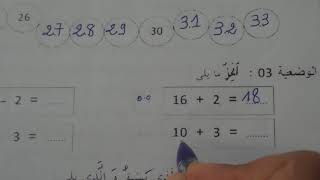 26 27 28 29 30 31 32 33
الوضعية 03 : أنجز ما يلي
- 2 = ........ 16 + 2 = 18...
3 = ........ 10 + 3 = ........